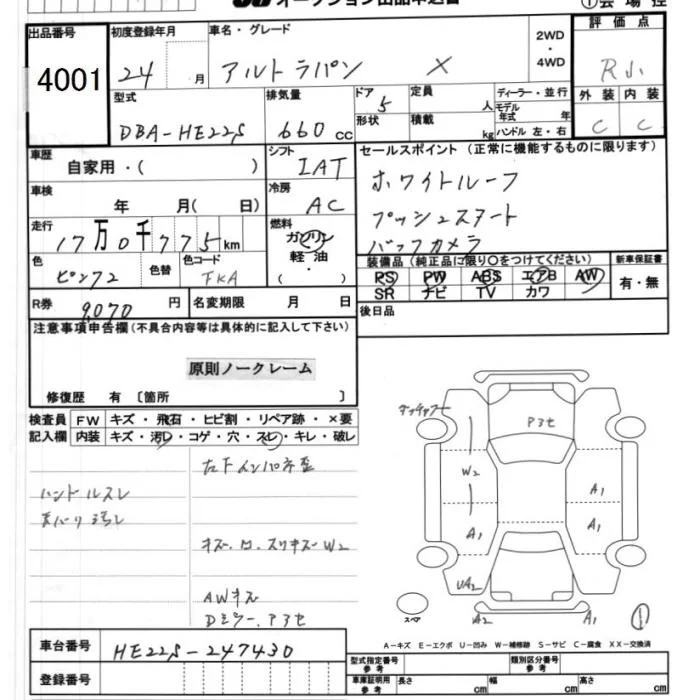 オークション出品申込書
①会場控
出品番号 4001
初度登録年月 24 月
車名・グレード アルトラパン X
2WD・4WD
評価点 R小
外装 C 内装 C
型式 DBA-HE22S
排気量 660 cc
ドア 5 形状
定員 人 積載 kg
ディーラー・並行
モデル年式 年
ハンドル 左・右
車歴 自家用・( )
シフト IAT
冷房 AC
車検 年 月( 日)
走行 17万0千775km
燃料 ガソリン 軽油 ( ・ )
色 ピンク2 色替 色コード FKA
R券 9,070 円 名変期限 月 日
セールスポイント (正常に機能するものに限ります)
ホワイトルーフ
プッシュスタート
バックカメラ
装備品(純正品に限り○をつけてください)
PS PW ABS エアB AW
SR ナビ TV カワ
新車保証書 有・無
後日品
注意事項申告欄(不具合内容等は具体的に記入して下さい)
原則ノークレーム
修復歴 有 〔箇所 〕
検査員記入欄
FW キズ・飛石・ヒビ割・リペア跡・×要
内装 キズ・汚レ・コゲ・穴・スレ・キレ・破レ
ハンドルスレ
天バリ汚レ
左下インパネ歪
キズ.凹.スリキズW2
AWキズ
Dミラー.アヨセ
タッチアップ
W2
A1
A1
A1
UA2
A2
A1
スペア
①
A−キズ E−エクボ U−凹み W−補修跡 S−サビ C−腐食 XX−交換済
車台番号 HE22S-247430
登録番号
型式指定番号 参考
類別区分番号 参考
車庫証明用 参考 長さ cm 幅 cm 高さ cm